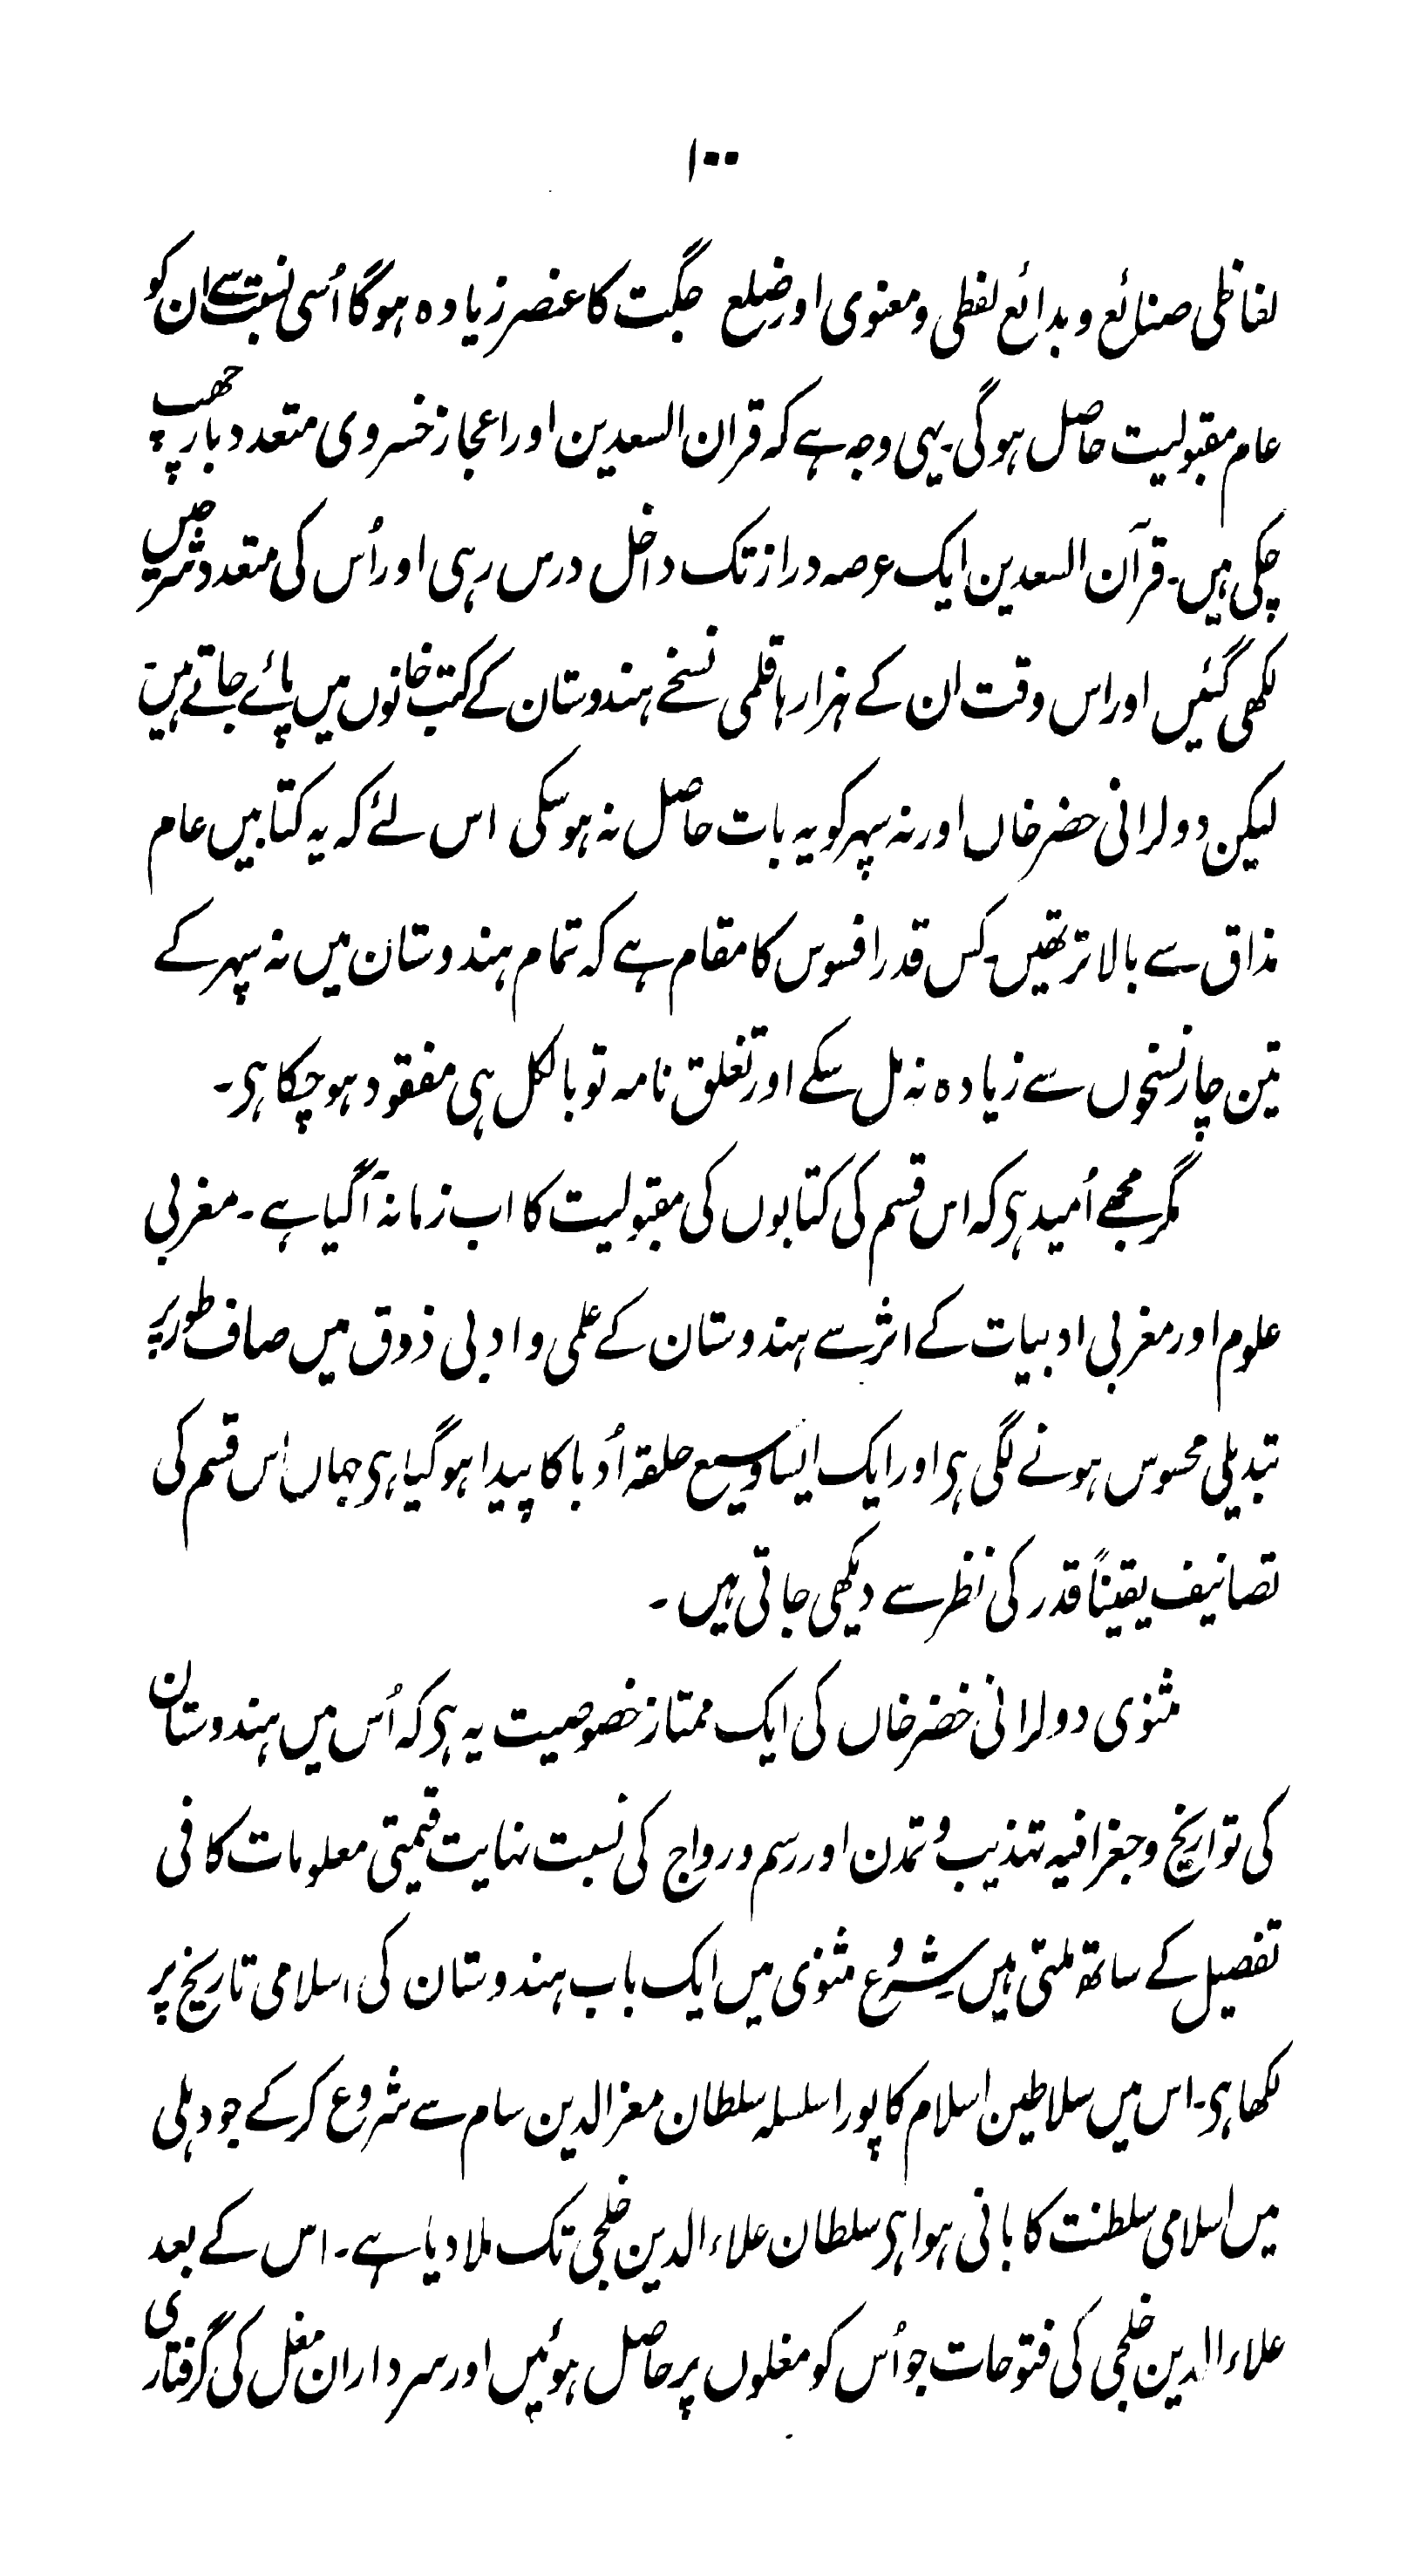 ۱۰۰
لفاظی صنائع و بدائع لفظی و معنوی اور ضلع جگت کا عنصر زیادہ ہوگا اُسی نسبت سے ان کو
عام مقبولیت حاصل ہوگی۔ یہی وجہ ہے کہ قران السعدین اور اعجاز خسروی متعدد بار چھپ
چکی ہیں۔ قرآن السعدین ایک عرصہ دراز تک داخل درس رہی اور اُس کی متعدد شرحیں
لکھی گئیں اور اس وقت ان کے ہزارہا قلمی نسخے ہندوستان کے کتب خانوں میں پائے جاتے ہیں
لیکن دولرانی خضر خاں اور نہ سپہر کو یہ بات حاصل نہ ہو سکی اس لئے کہ یہ کتابیں عام
مذاق سے بالاتر تھیں۔ کس قدر افسوس کا مقام ہے کہ تمام ہندوستان میں نہ سپہر کے
تین چار نسخوں سے زیادہ نہ مل سکے اور تغلق نامہ تو بالکل ہی مفقود ہو چکا ہی۔
مگر مجھے اُمید ہی کہ اس قسم کی کتابوں کی مقبولیت کا اب زمانہ آگیا ہے۔ مغربی
علوم اور مغربی ادبیات کے اثر سے ہندوستان کے علمی و ادبی ذوق میں صاف طور پر
تبدیلی محسوس ہونے لگی ہی اور ایک ایسا وسیع حلقہ اُدبا کا پیدا ہو گیا ہی جہاں اس قسم کی
تصانیف یقیناً قدر کی نظر سے دیکھی جاتی ہیں۔
مثنوی دولرانی خضر خاں کی ایک ممتاز خصوصیت یہ ہی کہ اُس میں ہندوستان
کی تواریخ و جغرافیہ تہذیب و تمدن اور رسم و رواج کی نسبت نہایت قیمتی معلومات کافی
تفصیل کے ساتھ ملتی ہیں شروع مثنوی میں ایک باب ہندوستان کی اسلامی تاریخ پر
لکھا ہی۔ اس میں سلاطین اسلام کا پورا سلسلہ سلطان معز الدین سام سے شروع کر کے جو دہلی
میں اسلامی سلطنت کا بانی ہوا ہی سلطان علاء الدین خلجی تک ملا دیا ہے۔ اس کے بعد
علاء الدین خلجی کی فتوحات جو اُس کو مغلوں پر حاصل ہوئیں اور سرداران مغل کی گرفتاری